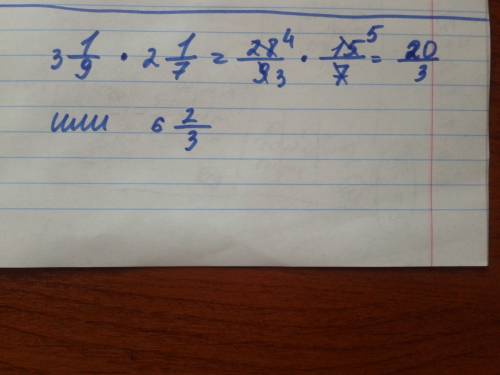 3 1/9 · 2 1/7 = 28 4/9 3 · 15 5/7 = 20/3
или 6 2/3